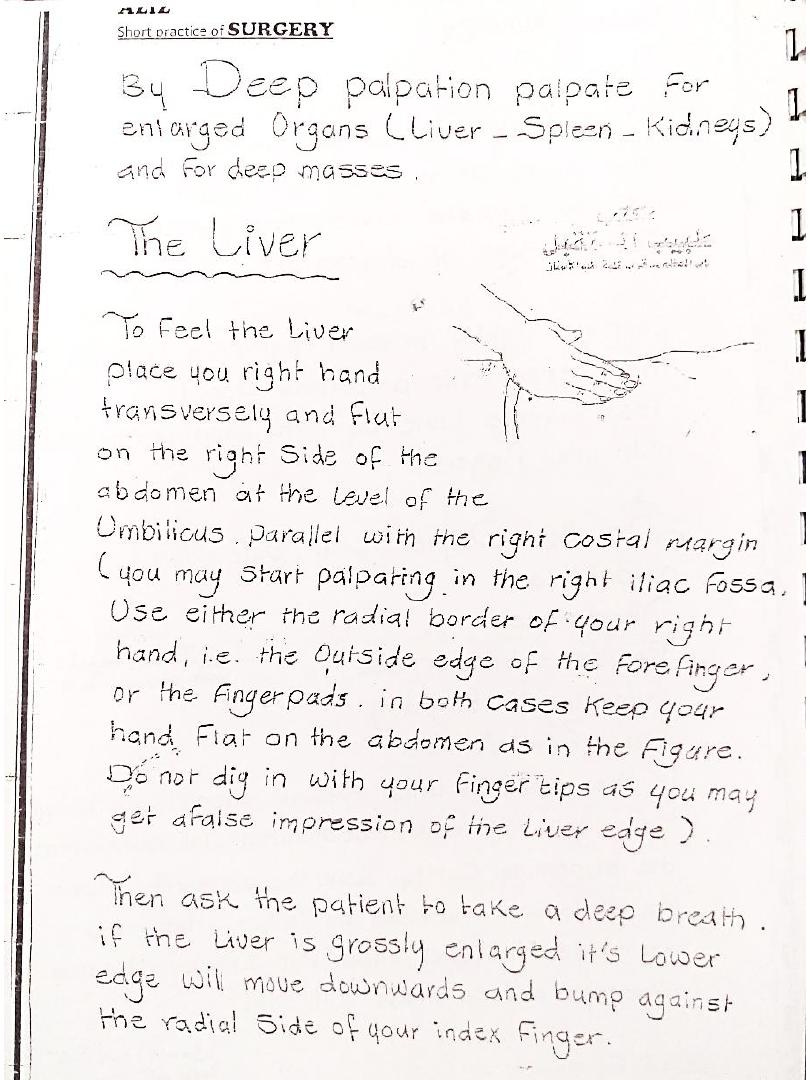 AZIZ
Short practice of SURGERY
By Deep palpation palpate For
enlarged Organs (Liver - Spleen - Kidneys)
and For deep masses.
The Liver
To Feel the Liver
place you right hand
transversely and flat
on the right Side of the
abdomen at the Level of the
Umbilicus. parallel with the right costal margin
(you may start palpating in the right iliac Fossa.
Use either the radial border of your right
hand, i.e. the Outside edge of the Forefinger,
or the Fingerpads. in both cases Keep your
hand Flat on the abdomen as in the Figure.
Do not dig in with your Finger tips as you may
get afalse impression of the Liver edge).
Then ask the patient to take a deep breath.
if the Liver is grossly enlarged it's Lower
edge will move downwards and bump against
the radial Side of your index Finger.